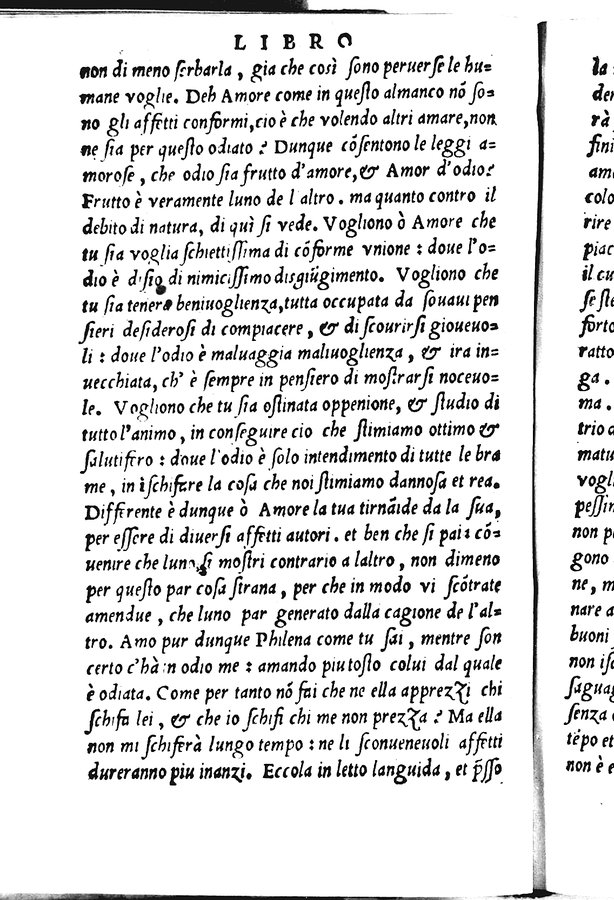 LIBRO
non di meno ſerbarla, gia che così ſono peruerſe le hu=
mane voglie. Deh Amore come in queſto almanco nõ ſo=
no gli affetti conformi, cio è che volendo altri amare, non
ne ſia per queſto odiato? Dunque cõſentono le leggi a=
moroſe, che odio ſia frutto d'amore, & Amor d'odio?
Frutto è veramente luno de l altro. ma quanto contro il
debito di natura, di quì ſi vede. Vogliono ò Amore che
tu ſia voglia ſchiettiſſima di cõforme vnione : doue l'o=
dio è diſio di nimiciſſimo disgiũgimento. Vogliono che
tu ſia tenera beniuoglienza, tutta occupata da ſouaui pen
ſieri deſideroſi di compiacere, & di ſcourirſi gioueuo=
li : doue l'odio è maluaggia maliuoglienza, & ira in=
uecchiata, ch' è ſempre in penſiero di moſtrarſi noceuo=
le. Vogliono che tu ſia oſtinata oppenione, & ſtudio di
tutto l'animo, in conſeguire cio che ſtimiamo ottimo &
ſalutifero : doue l'odio è ſolo intendimento di tutte le bra
me, in iſchifare la coſa che noi ſtimiamo dannoſa et rea.
Differente è dunque ò Amore la tua tirnãide da la ſua,
per eſſere di diuerſi affetti autori. et ben che ſi paia cõ=
uenire che luno, ſi moſtri contrario a laltro, non dimeno
per queſto par coſa ſtrana, per che in modo vi ſcõtrate
amendue, che luno par generato dalla cagione de l'al=
tro. Amo pur dunque Philena come tu ſai, mentre ſon
certo c'hà in odio me : amando piu toſto colui dal quale
è odiata. Come per tanto nõ fai che ne ella apprezzi chi
ſchifa lei, & che io ſchifi chi me non prezza? Ma ella
non mi ſchiferà lungo tempo : ne li ſconueneuoli affetti
dureranno piu inanzi. Eccola in letto languida, et p̃ſſo